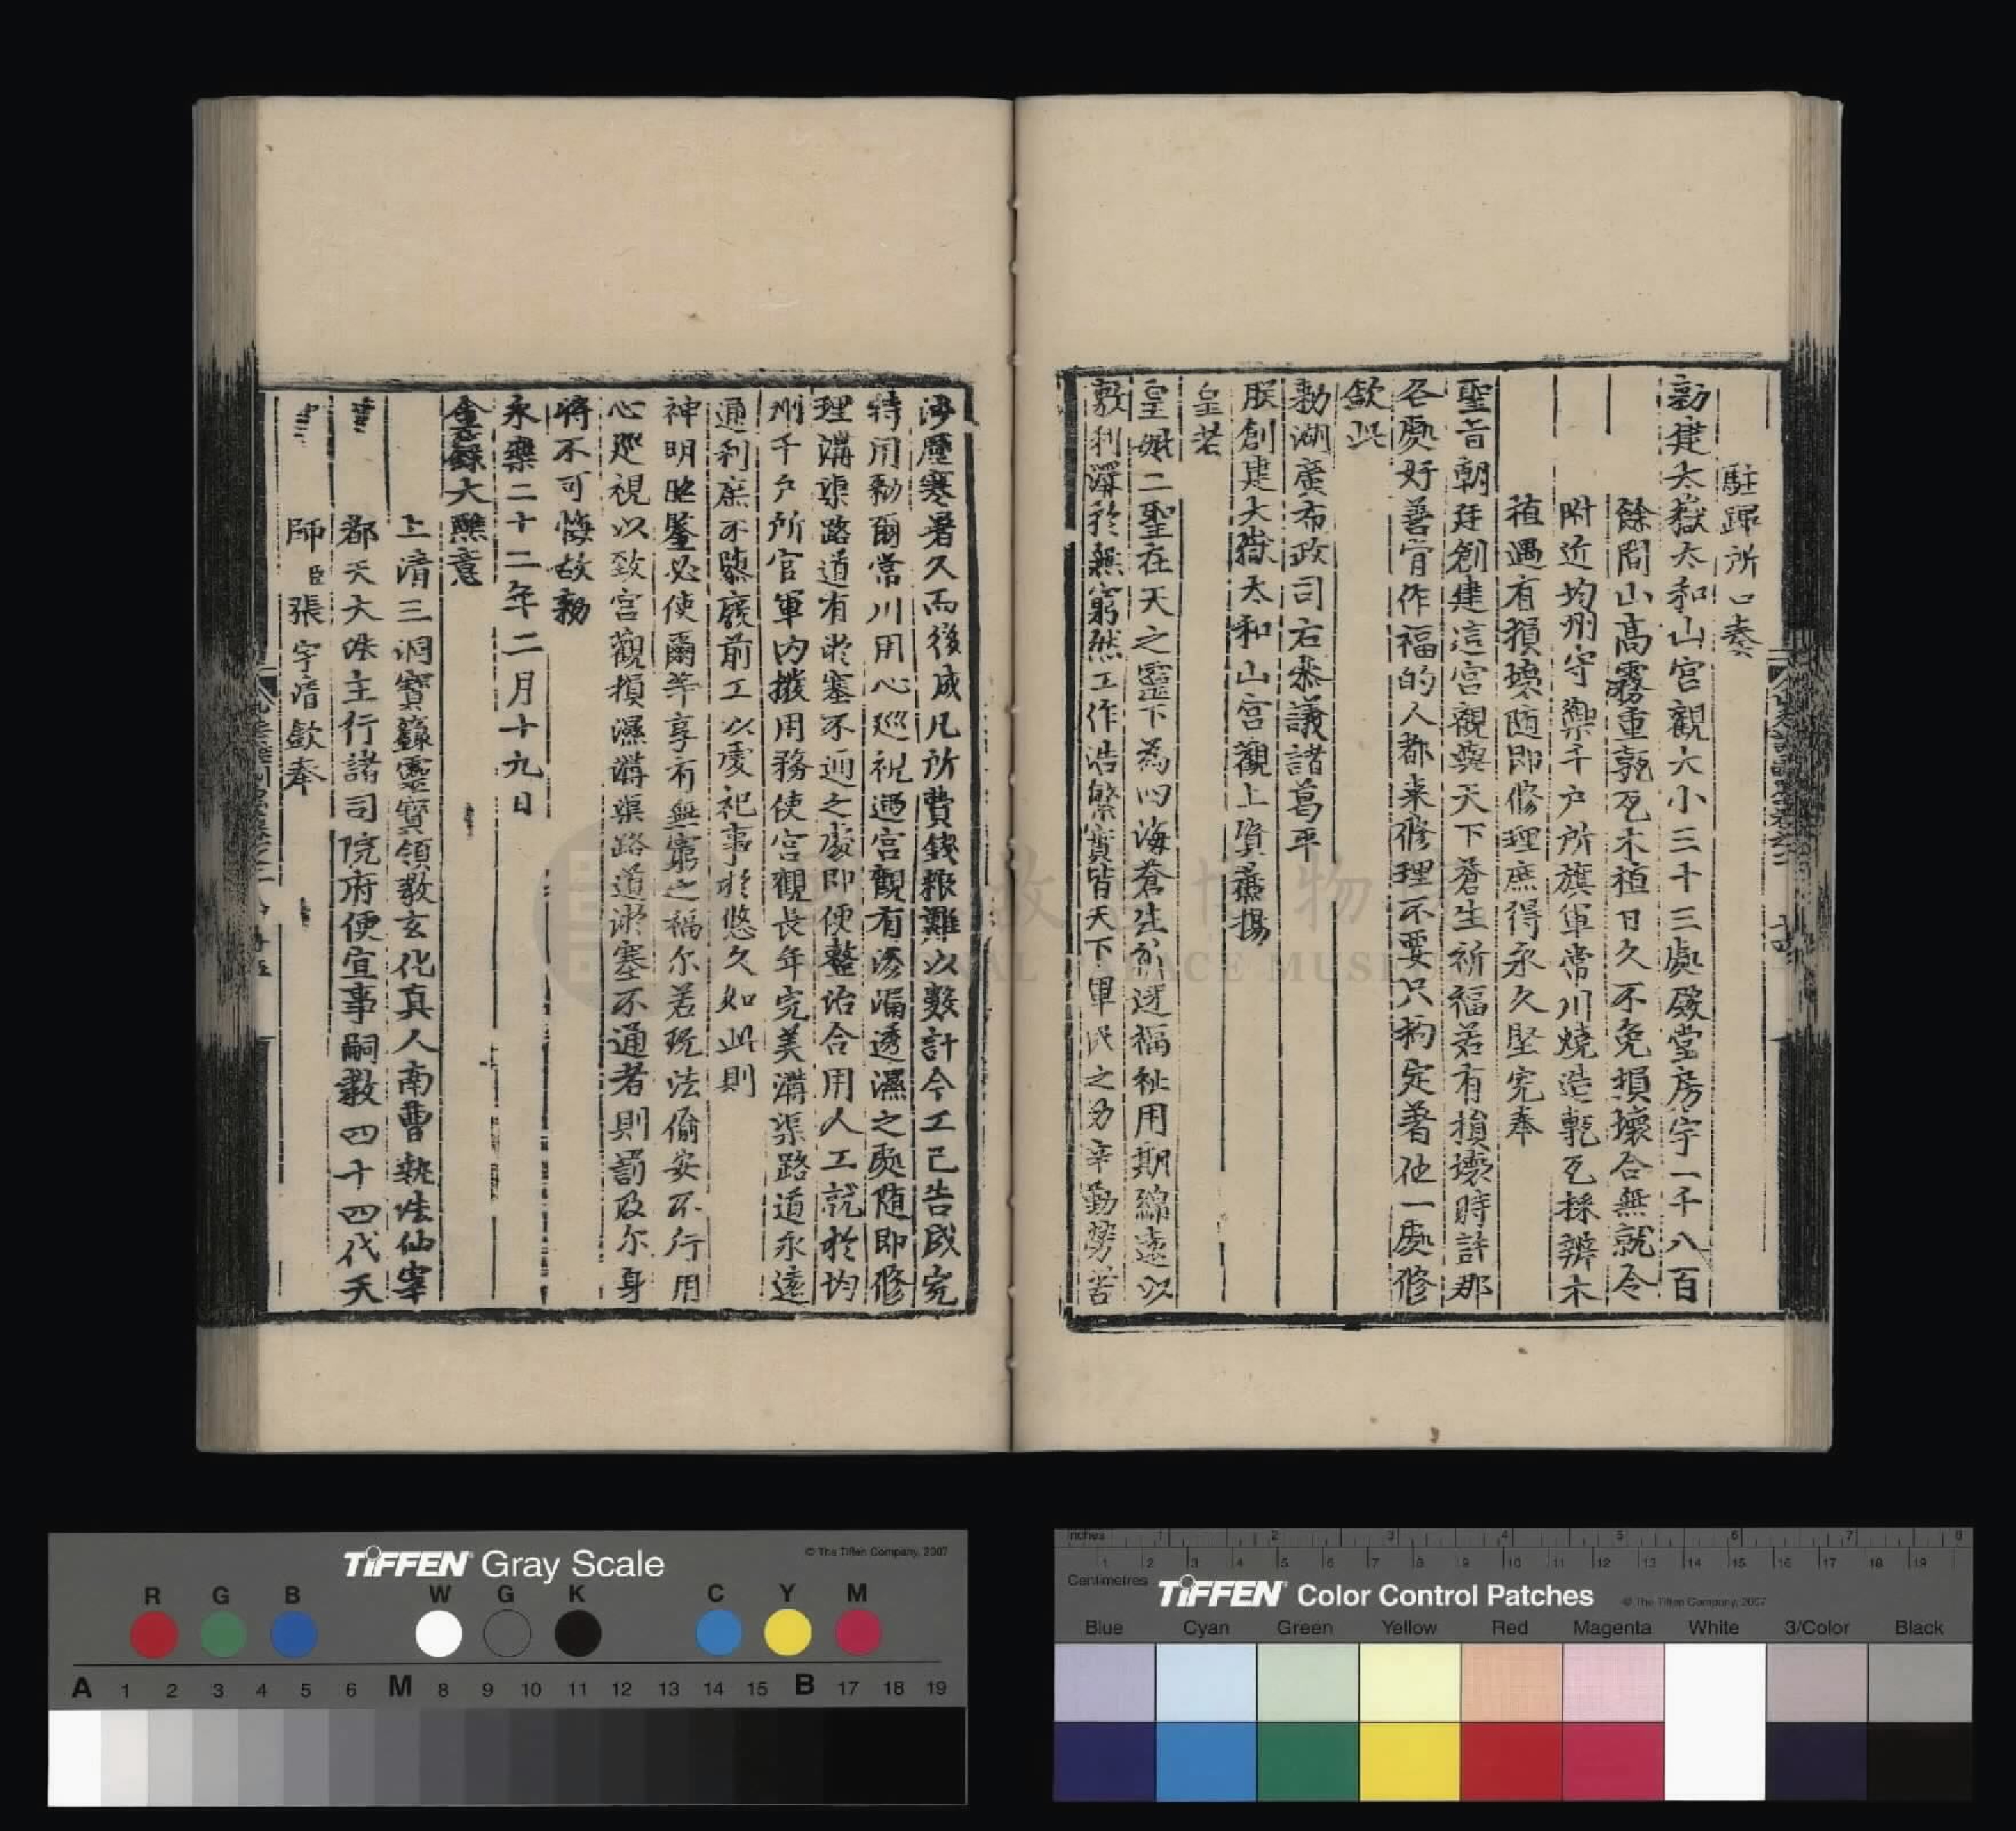 駐蹕所口奏
勅建太嶽太和山宮觀大小三十三處殿堂房宇一千八百
餘間山高霧重甎瓦木植日久不免損壞合無就令
附近均州守禦千戶所旗軍常川燒造甎瓦採辦木
植遇有損壞随即修理庶得永久堅完奉
聖旨朝廷創建這宮觀與天下蒼生祈福若有損壞時許那
各處好善肯作福的人都来修理不要只拘定著他一處修
欽此
勅湖廣布政司右叅議諸葛平
朕創建大嶽太和山宮觀上資薦揚
皇考
皇妣二聖在天之靈下為四海蒼生祈迓福祉用期綿遠以
敷利澤於無窮然工作浩繁實皆天下軍民之力辛勤勞苦
渉歷寒暑久而後成凡所費錢粮難以數計今工已告成完
特用勅爾常川用心巡視遇宮觀有滲漏透濕之處随即修
理溝渠路道有淤塞不通之處即便整治合用人工就於均
州千戶所官軍内撥用務使宮觀長年完美溝渠路道永遠
通利庶不隳廢前工以虔祀事於悠久如此則
神明昭鑒必使爾等享有無窮之福尔若玩法偷安不行用
心廵視以致宮觀損濕溝渠路道淤塞不通者則罰及尔身
將不可悔故勅
永樂二十二年二月十九日
金籙大醮意
上清三洞寶籙靈寶領教玄化真人南曹執法仙宰
都天大法主行諸司院府便宜事嗣教四十四代天
師臣張宇清欽奉
國立故宮博物院
NATIONAL PALACE MUSEUM
TIFFEN Gray Scale
© The Tiffen Company, 2007
R G B W G K C Y M
A 1 2 3 4 5 6 M 8 9 10 11 12 13 14 15 B 17 18 19
Inches 1 2 3 4 5 6 7 8
Centimetres 1 2 3 4 5 6 7 8 9 10 11 12 13 14 15 16 17 18 19
TIFFEN Color Control Patches
© The Tiffen Company, 2007
Blue Cyan Green Yellow Red Magenta White 3/Color Black